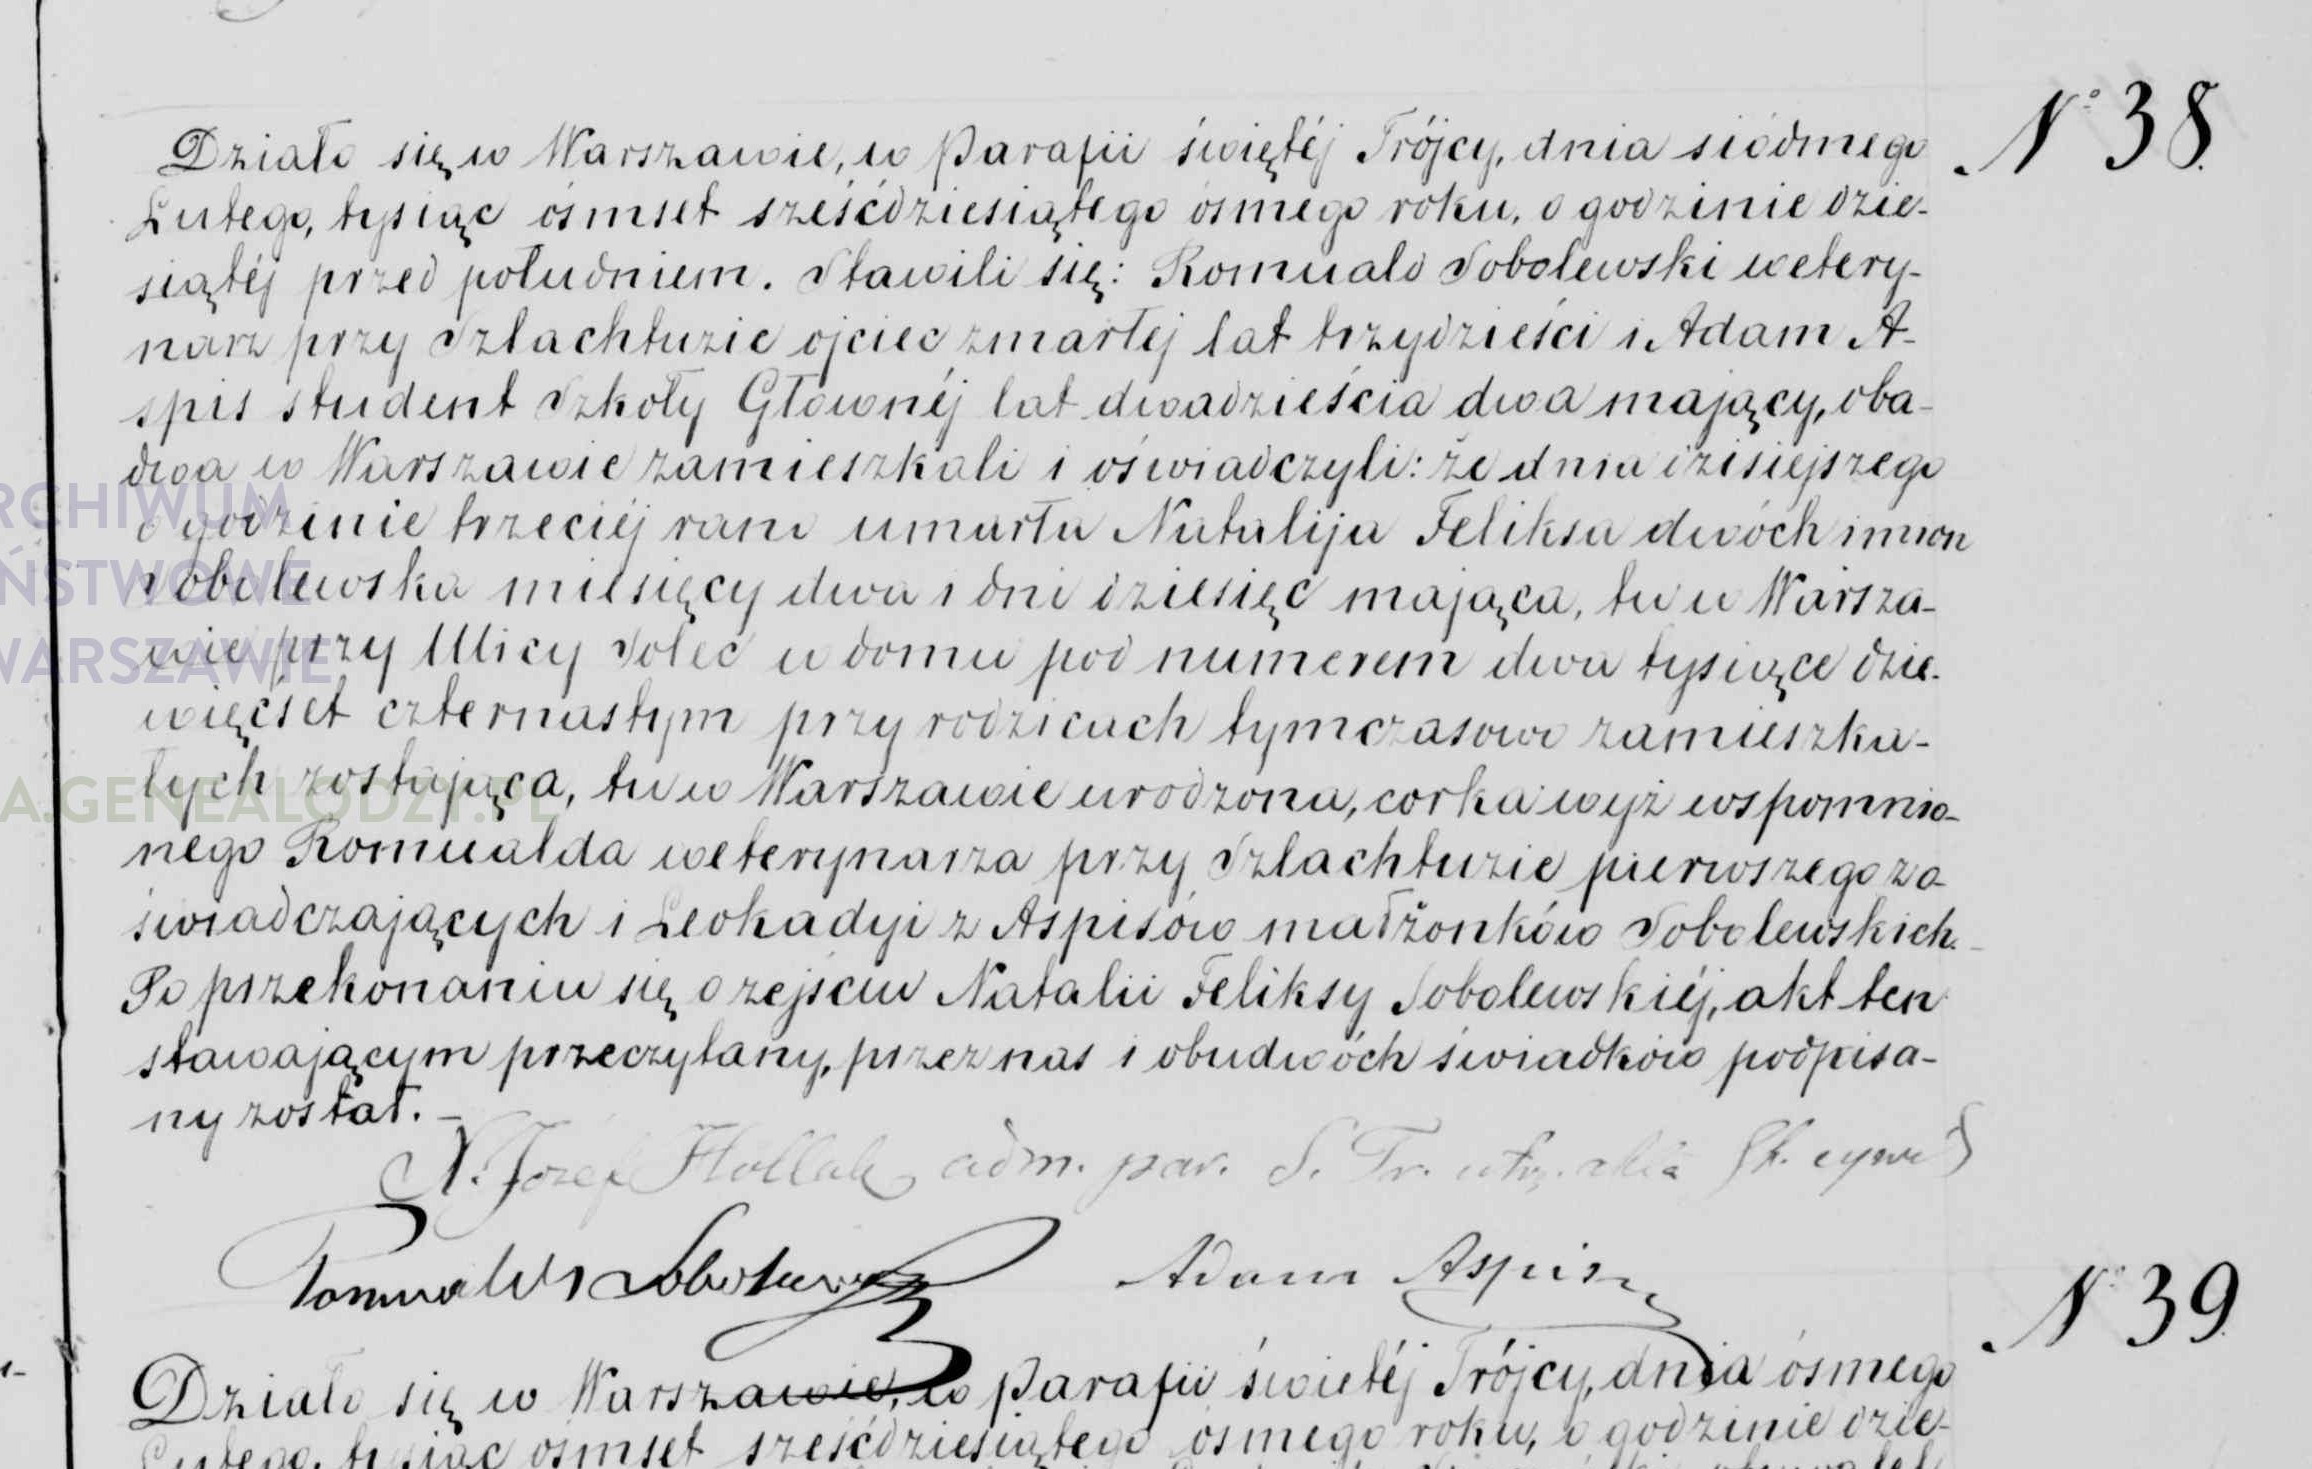 Nº 38.
Działo się w Warszawie, w Parafii świętéj Trójcy, dnia siódmego
Lutego, tysiąc ośmset sześćdziesiątego ósmego roku, o godzinie dzie-
siątéj przed południem. Stawili się: Romuald Sobolewski wetery-
narz przy Szlachtuzie ojciec zmarłej lat trzydzieści i Adam A-
spis student Szkoły Głównéj lat dwadzieścia dwa mający, oba-
dwa w Warszawie zamieszkali i oświadczyli: że dnia dzisiejszego
o godzinie trzeciéj rano umarła Natalija Feliksa dwóch imion
Sobolewska miesięcy dwa i dni dziesięć mająca, tu w Warsza-
wie przy Ulicy Solec w domu pod numerem dwa tysiące dzie-
więćset czternastym przy rodzicach tymczasowo zamieszka-
łych zostająca, tu w Warszawie urodzona, corka wyż wspomnio-
nego Romualda weterynarza przy Szlachtuzie pierwszego z o-
świadczających i Leokadyi z Aspisów małżonków Sobolewskich.
Po przekonaniu się o zejściu Natalii Feliksy Sobolewskiéj, akt ten
stawającym przeczytany, przez nas i obudwóch świadków podpisa-
ny został. –
X. Józef Hollak adm. par. S. Tr. utrz. akta
Romuald Sobolewski Adam Aspis
Nº 39.
Działo się w Warszawie, w Parafii świetéj Trójcy, dnia ósmego
Lutego, tysiąc ośmset sześćdziesiątego ósmego roku, o godzinie dzie-
ARCHIWUM
PAŃSTWOWE
WARSZAWIE
A.GENEALODZY.PL